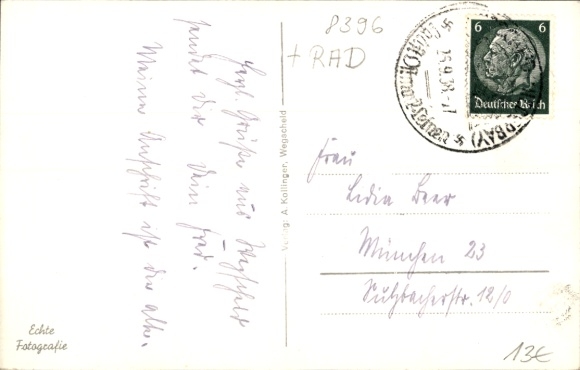 8396
+ RAD
6 6
Deutsches Reich
Herzl. Grüße aus Wegscheid
sendet dir dein Fred.
Meine Anschrift ist die alte.
Verlag: A. Kollinger, Wegscheid
Frau
Lidia Beer
München 23
Sulzbacherstr. 12/0
Echte
Fotografie
13€